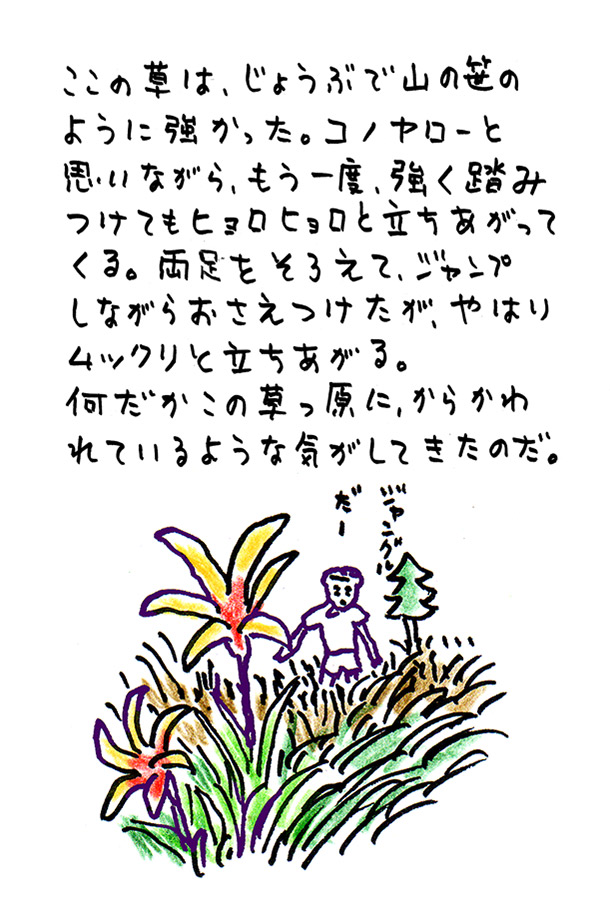 ここの草は、じょうぶで山の笹の
ように強かった。コノヤローと
思いながら、もう一度、強く踏み
つけてもヒョロヒョロと立ちあがって
くる。両足をそろえて、ジャンプ
しながらおさえつけたが、やはり
ムックリと立ちあがる。
何だかこの草っ原に、からかわ
れているような気がしてきたのだ。
ジャングル
だー